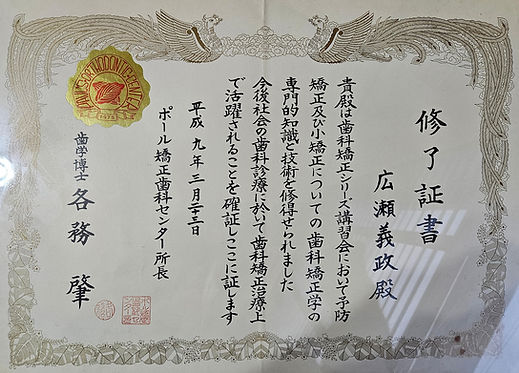 修了証書
広瀬義政殿
貴殿は歯科矯正シリーズ講習会において予防
矯正及び小矯正についての歯科矯正学の
専門的知識と技術を修得せられました
今後社会の歯科診療において歯科矯正治療上
で活躍されることを確証しここに証します
平成九年三月二十三日
ポール矯正歯科センター所長
歯学博士 各務 肇